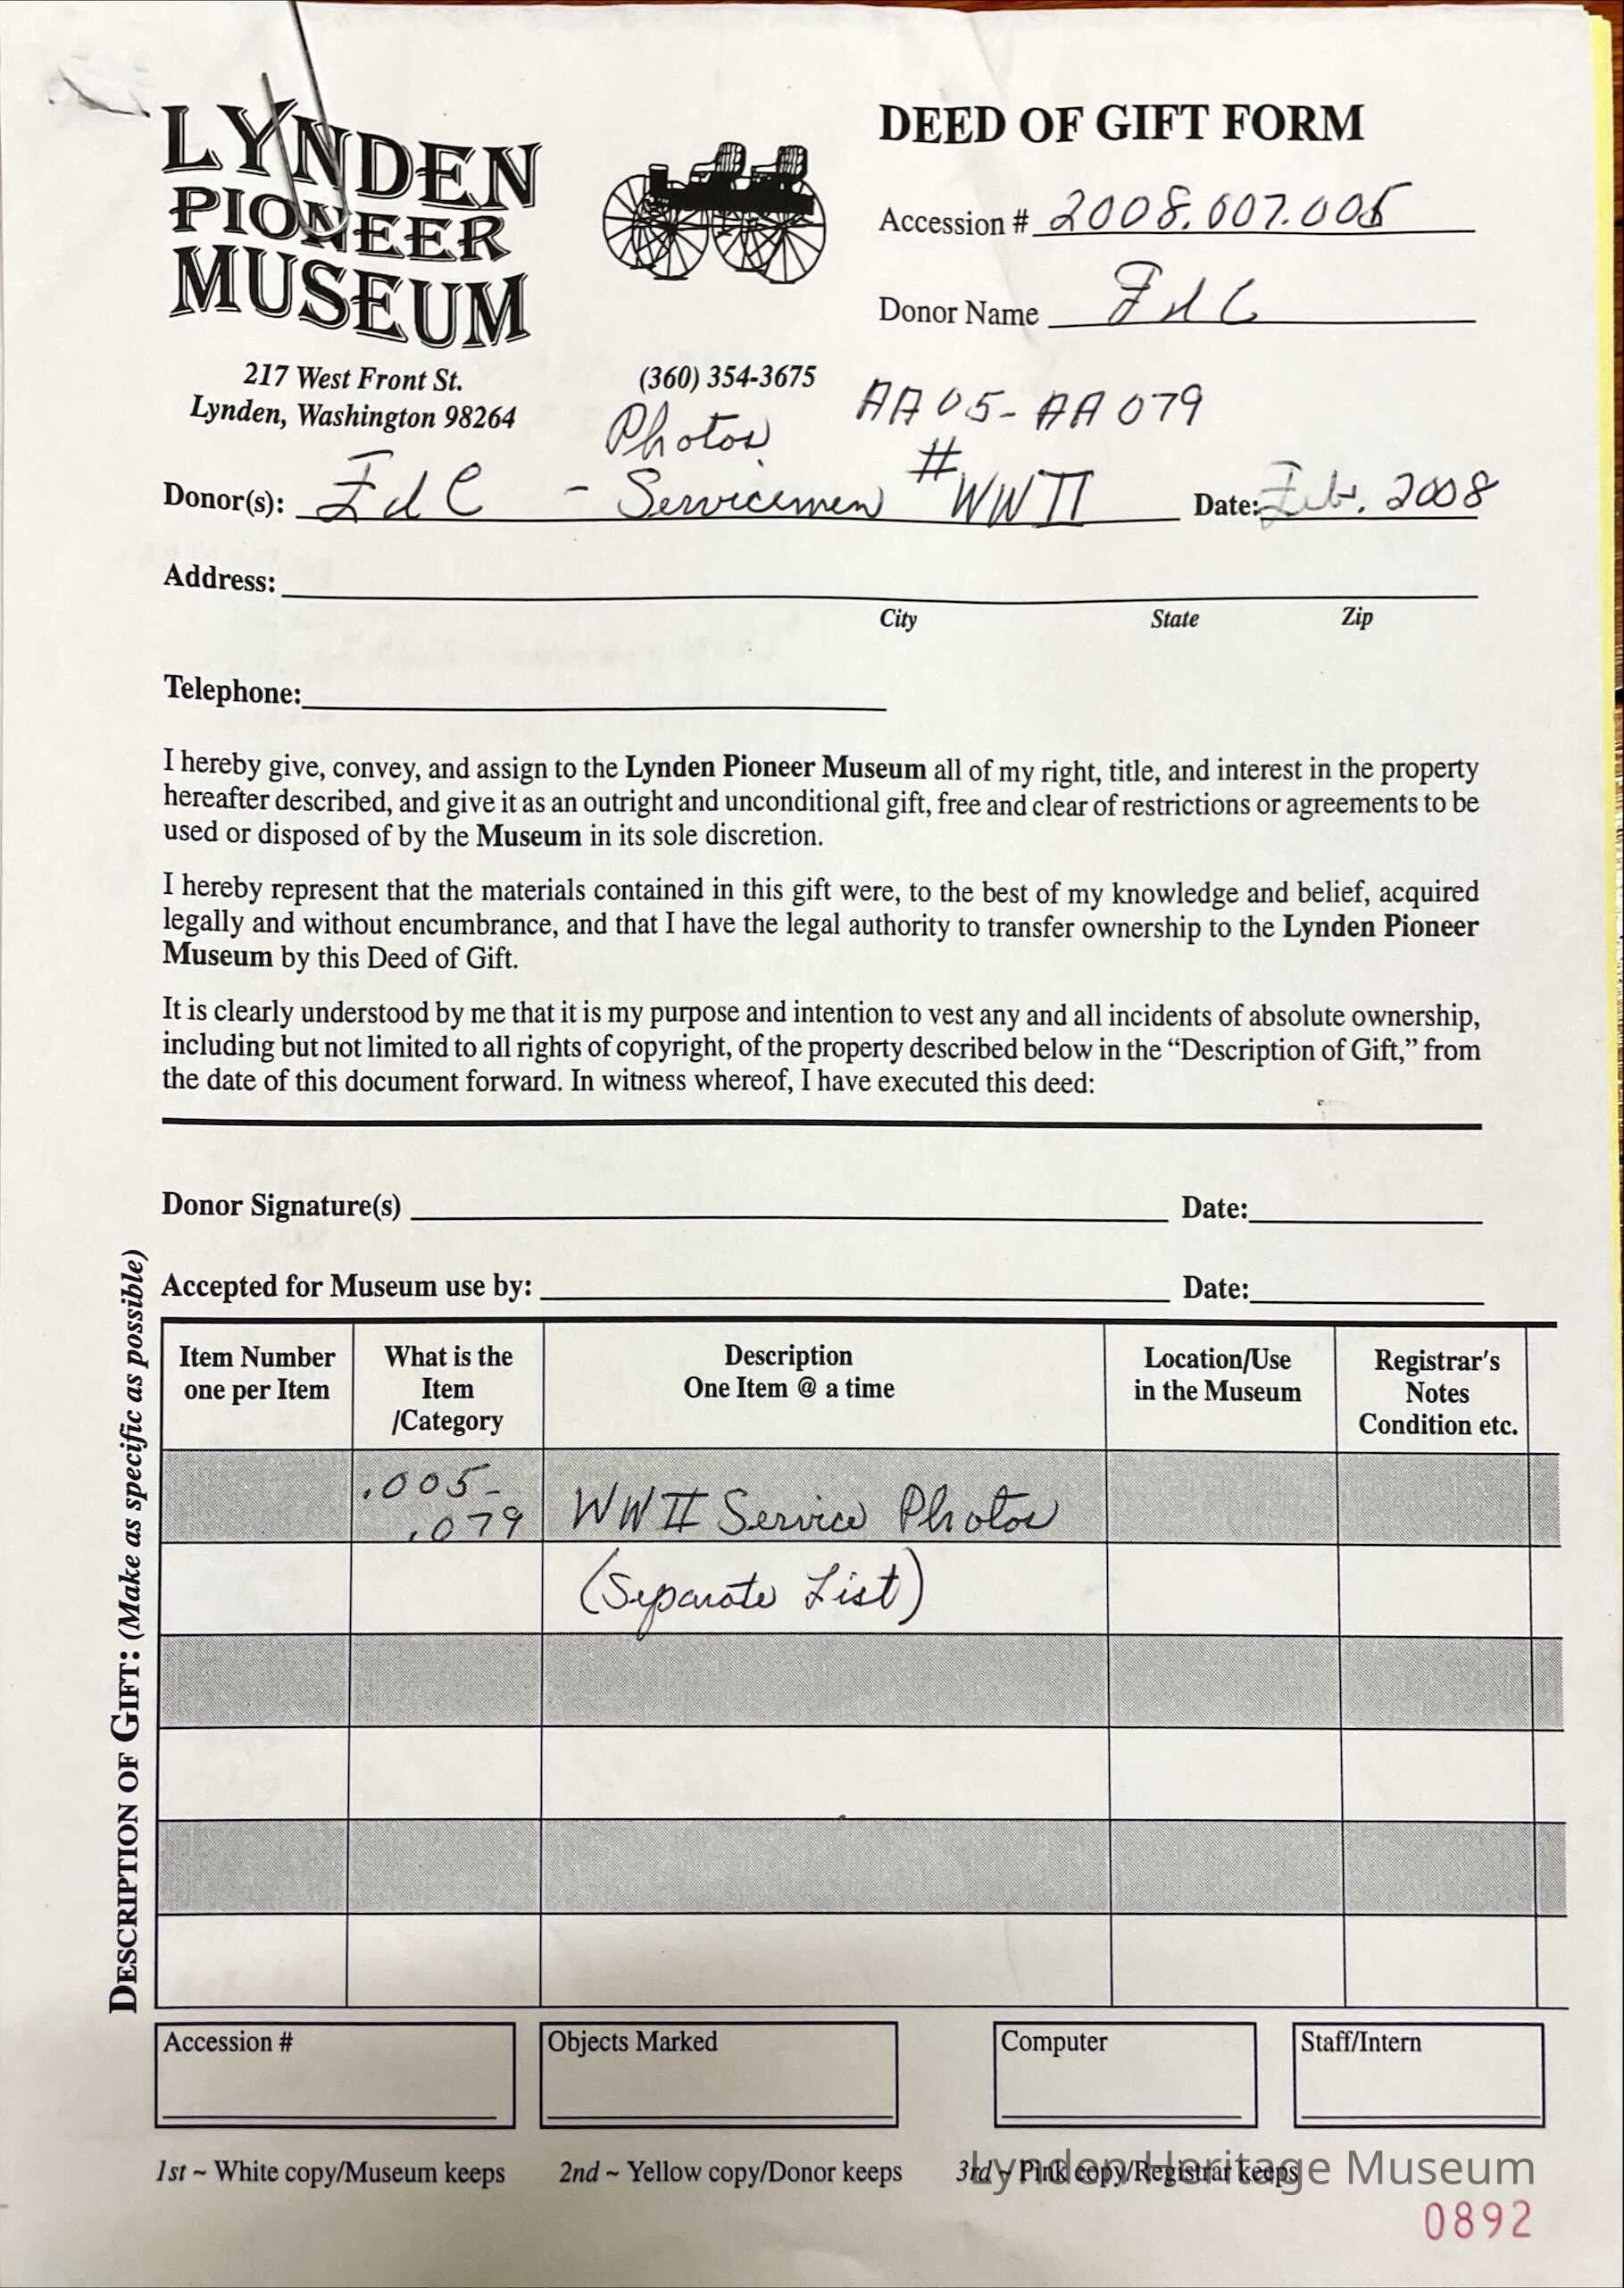 LYNDEN
PIONEER
MUSEUM
217 West Front St.
Lynden, Washington 98264
(360) 354-3675
DEED OF GIFT FORM
Accession # 2008.007.005
Donor Name Ed C
AA 05- AA 079
Photos
#
Donor(s): Ed C - Servicemen WWII Date: Feb. 2008
Address:
City State Zip
Telephone:
I hereby give, convey, and assign to the Lynden Pioneer Museum all of my right, title, and interest in the property
hereafter described, and give it as an outright and unconditional gift, free and clear of restrictions or agreements to be
used or disposed of by the Museum in its sole discretion.
I hereby represent that the materials contained in this gift were, to the best of my knowledge and belief, acquired
legally and without encumbrance, and that I have the legal authority to transfer ownership to the Lynden Pioneer
Museum by this Deed of Gift.
It is clearly understood by me that it is my purpose and intention to vest any and all incidents of absolute ownership,
including but not limited to all rights of copyright, of the property described below in the “Description of Gift,” from
the date of this document forward. In witness whereof, I have executed this deed:
Donor Signature(s) Date:
Accepted for Museum use by: Date:
DESCRIPTION OF GIFT: (Make as specific as possible)
Item Number
one per Item
What is the
Item
/Category
Description
One Item @ a time
Location/Use
in the Museum
Registrar's
Notes
Condition etc.
.005-
.079
WWII Service Photos
(Separate List)
Accession #
Objects Marked
Computer
Staff/Intern
1st ~ White copy/Museum keeps
2nd ~ Yellow copy/Donor keeps
3rd ~ Pink copy/Registrar keeps
Lynden Heritage Museum
0892